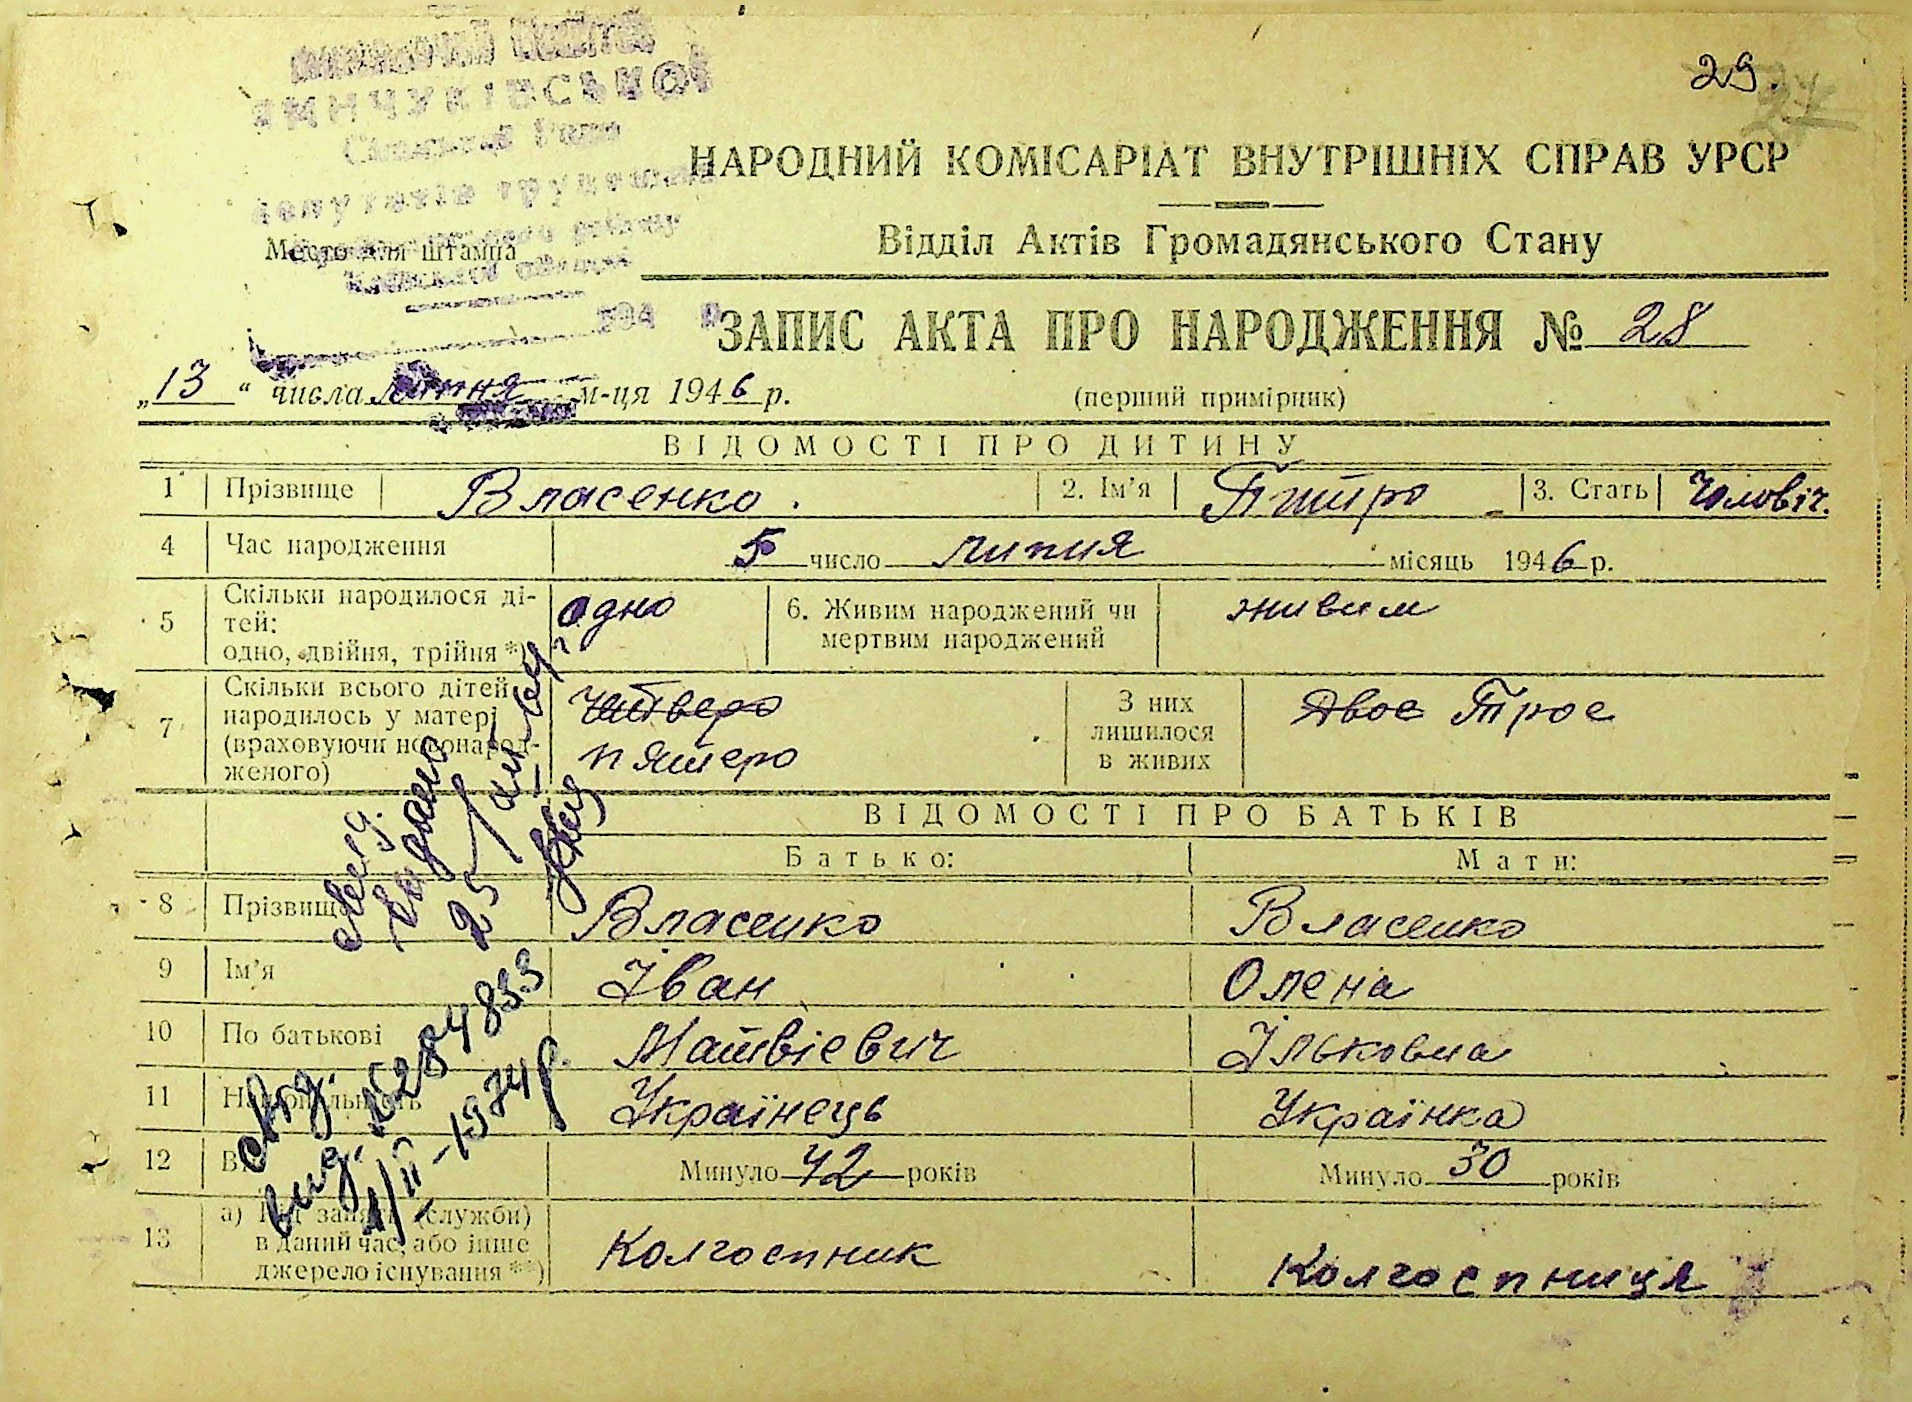 29.
Сільської Ради
депутатів трудящих
НАРОДНИЙ КОМІСАРІАТ ВНУТРІШНІХ СПРАВ УРСР
Место для штампа
Відділ Актів Громадянського Стану
194 р
ЗАПИС АКТА ПРО НАРОДЖЕННЯ № 28
„13“ числа липня м-ця 1946 р.
(перший примірник)
ВІДОМОСТІ ПРО ДИТИНУ
1 Прізвище Власенко. 2. Ім’я Питро 3. Стать Чоловіч.
4 Час народження 5 число липня місяць 1946 р.
5 Скільки народилося ді-
тей:
одно, двійня, трійня *)
одно
6. Живим народжений чи
мертвим народжений
живим
7 Скільки всього дітей
народилось у матері
(враховуючи новонарод-
женого)
Четверо
пятеро
З них
лишилося
в живих
Двое Трое
ВІДОМОСТІ ПРО БАТЬКІВ
Батько: Мати:
8 Прізвище Власенко Власенко
9 Ім’я Іван Олена
10 По батькові Матвієвич Ільковна
11 Національність Українець Українка
12 Вік Минуло 42 років Минуло 30 років
13 а) Рід занять (служби)
в даний час, або інше
джерело існування **)
Колгоспник Колгоспниця
вид.
1/II-1974 р.